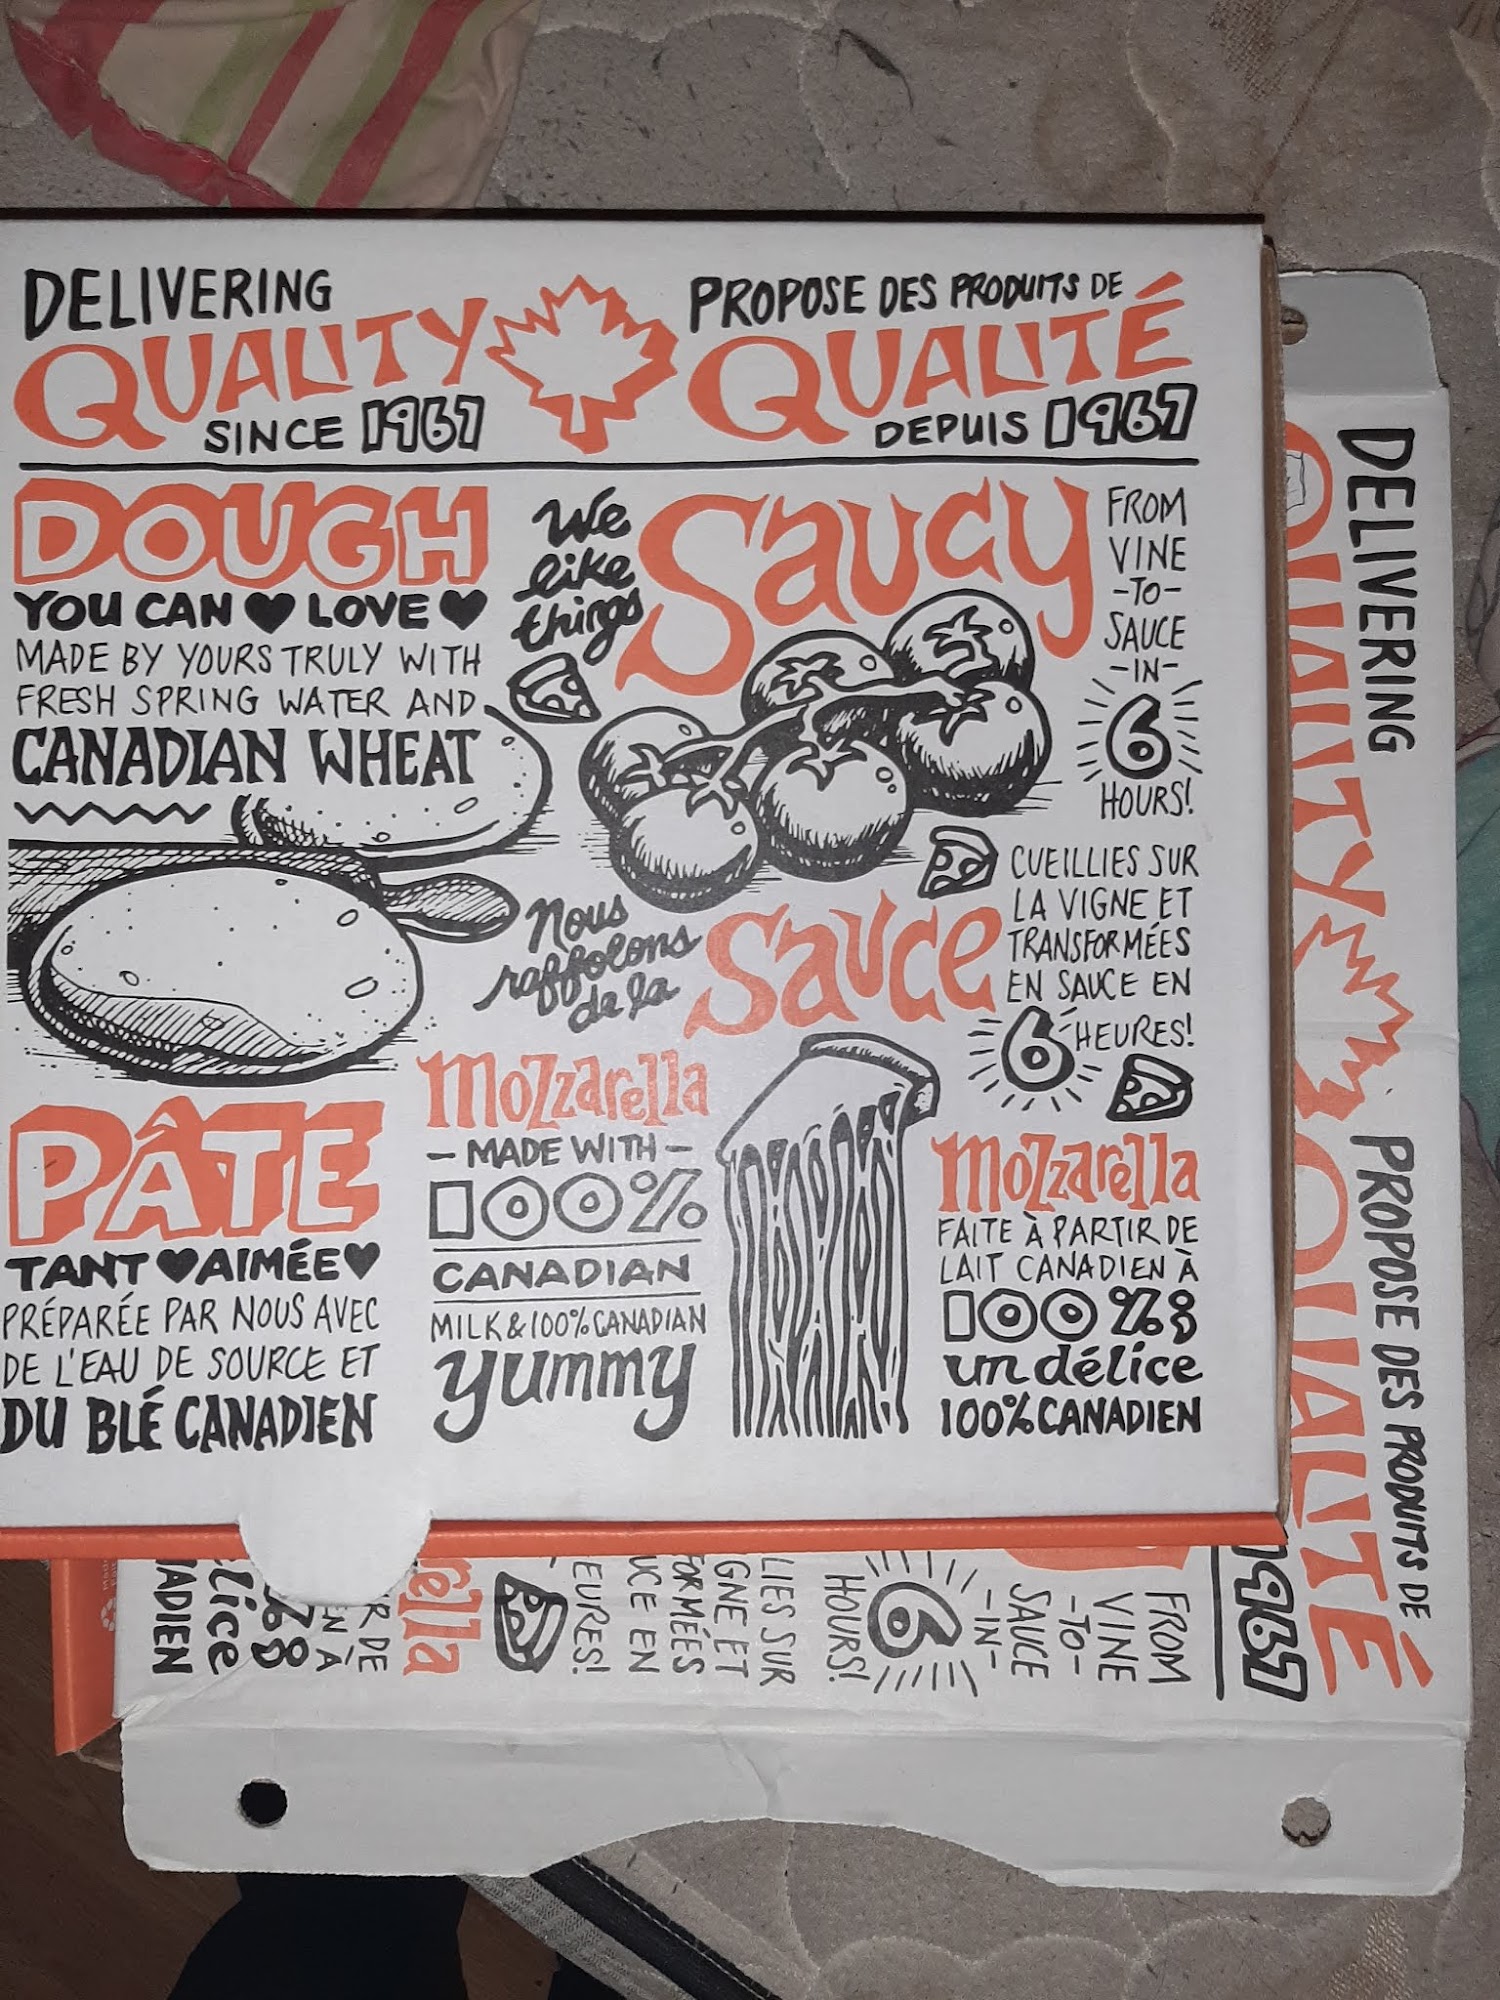 DELIVERING
QUALITY
SINCE 1967
PROPOSE DES PRODUITS DE
QUALITÉ
DEPUIS 1967
DOUGH
YOU CAN ♥ LOVE ♥
MADE BY YOURS TRULY WITH
FRESH SPRING WATER AND
CANADIAN WHEAT
We
like
things
Saucy
FROM
VINE
-TO-
SAUCE
-IN-
6
HOURS!
Nous
raffolons
de la
Sauce
CUEILLIES SUR
LA VIGNE ET
TRANSFORMÉES
EN SAUCE EN
6 HEURES!
PÂTE
TANT ♥ AIMÉE ♥
PRÉPARÉE PAR NOUS AVEC
DE L'EAU DE SOURCE ET
DU BLÉ CANADIEN
Mozzarella
- MADE WITH -
100%
CANADIAN
MILK & 100% CANADIAN
yummy
Mozzarella
FAITE À PARTIR DE
LAIT CANADIEN À
100% &
un délice
100% CANADIEN
DELIVERING
QUALITY
PROPOSE DES PRODUITS DE
QUALITÉ
1967
FROM
VINE
-TO-
SAUCE
-IN-
6
HOURS!
LIES SUR
GNE ET
FORMÉES
UCE EN
EURES!
rella
R DE
EN À
% &
élice
NADIEN